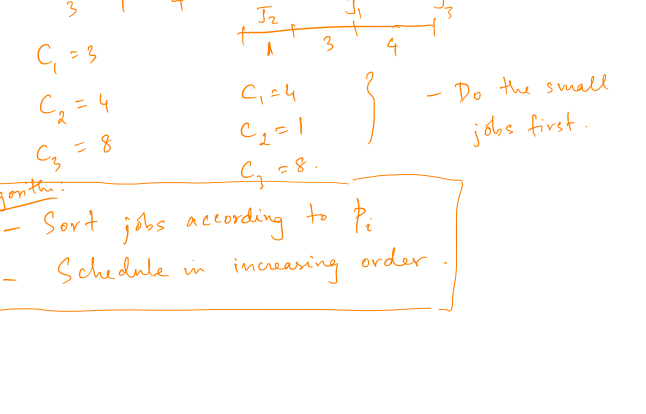 3 1 4
J₂ J₁ J₃
1 3 4
C₁ = 3
C₂ = 4
C₃ = 8
C₁ = 4
C₂ = 1
C₃ = 8.
- Do the small
jobs first.
gorithm:
- Sort jobs according to Pᵢ
- Schedule in increasing order.